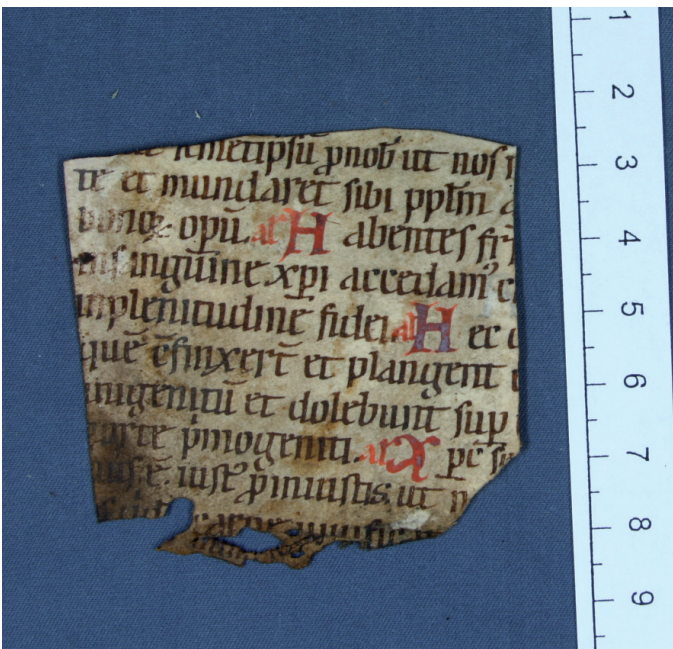 semetipsū ꝓnob̄ ut nos
te et mundaret sibi ppl̄m
bonoꝝ opū. al H abentes
insanguīne xp̄i accedam᷒
inplenitudinē fidei. al H ec
quē c̄finxerт̄ et plangent
unigenitū et dolebunt sup
morte p̄mogeniti. al X pc̄
ē. iust᷒ p̄iniustis. ut
carne uiuific
1
2
3
4
5
6
7
8
9